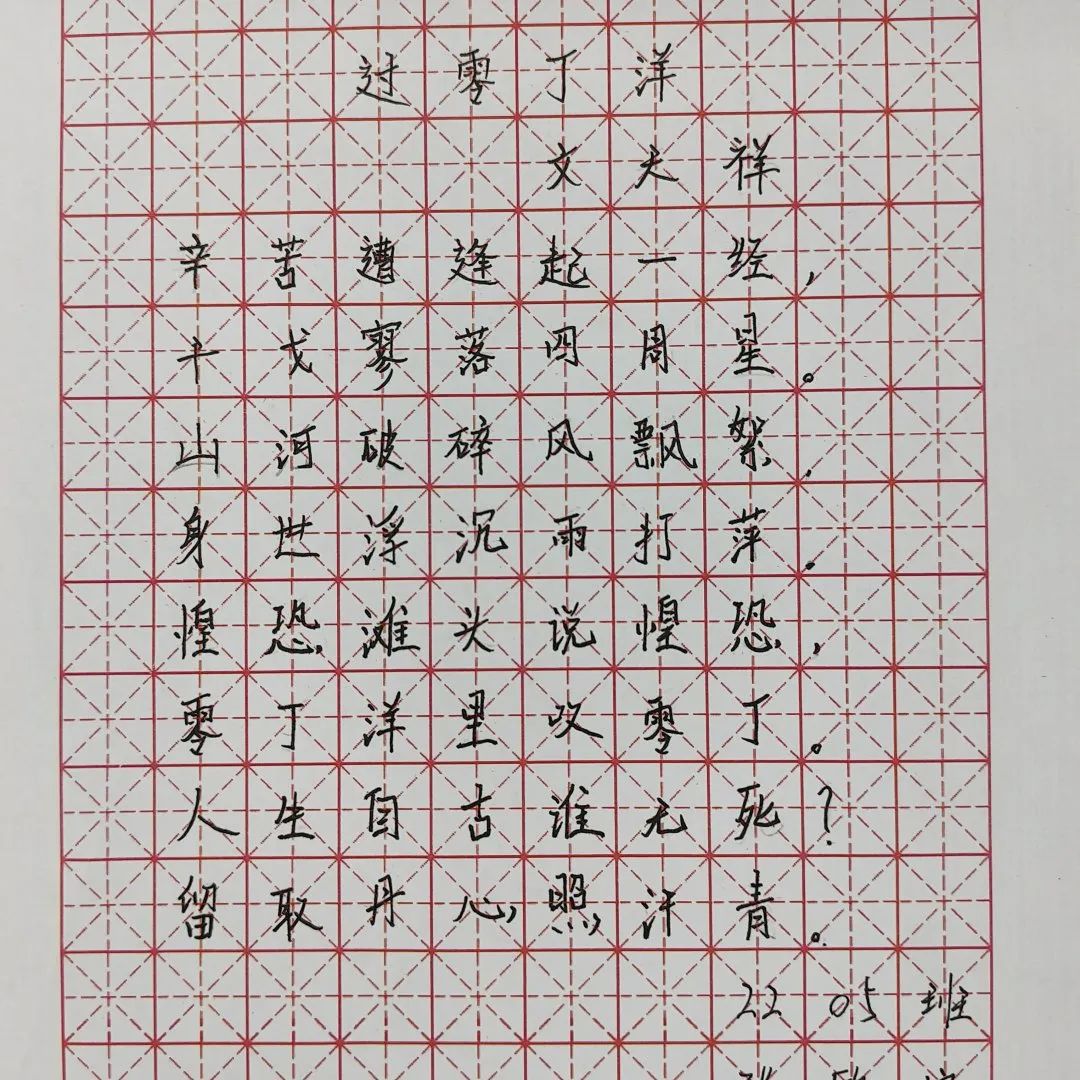 过零丁洋
文天祥
辛苦遭逢起一经，
干戈寥落四周星。
山河破碎风飘絮，
身世浮沉雨打萍。
惶恐滩头说惶恐，
零丁洋里叹零丁。
人生自古谁无死？
留取丹心照汗青。
22 05 班